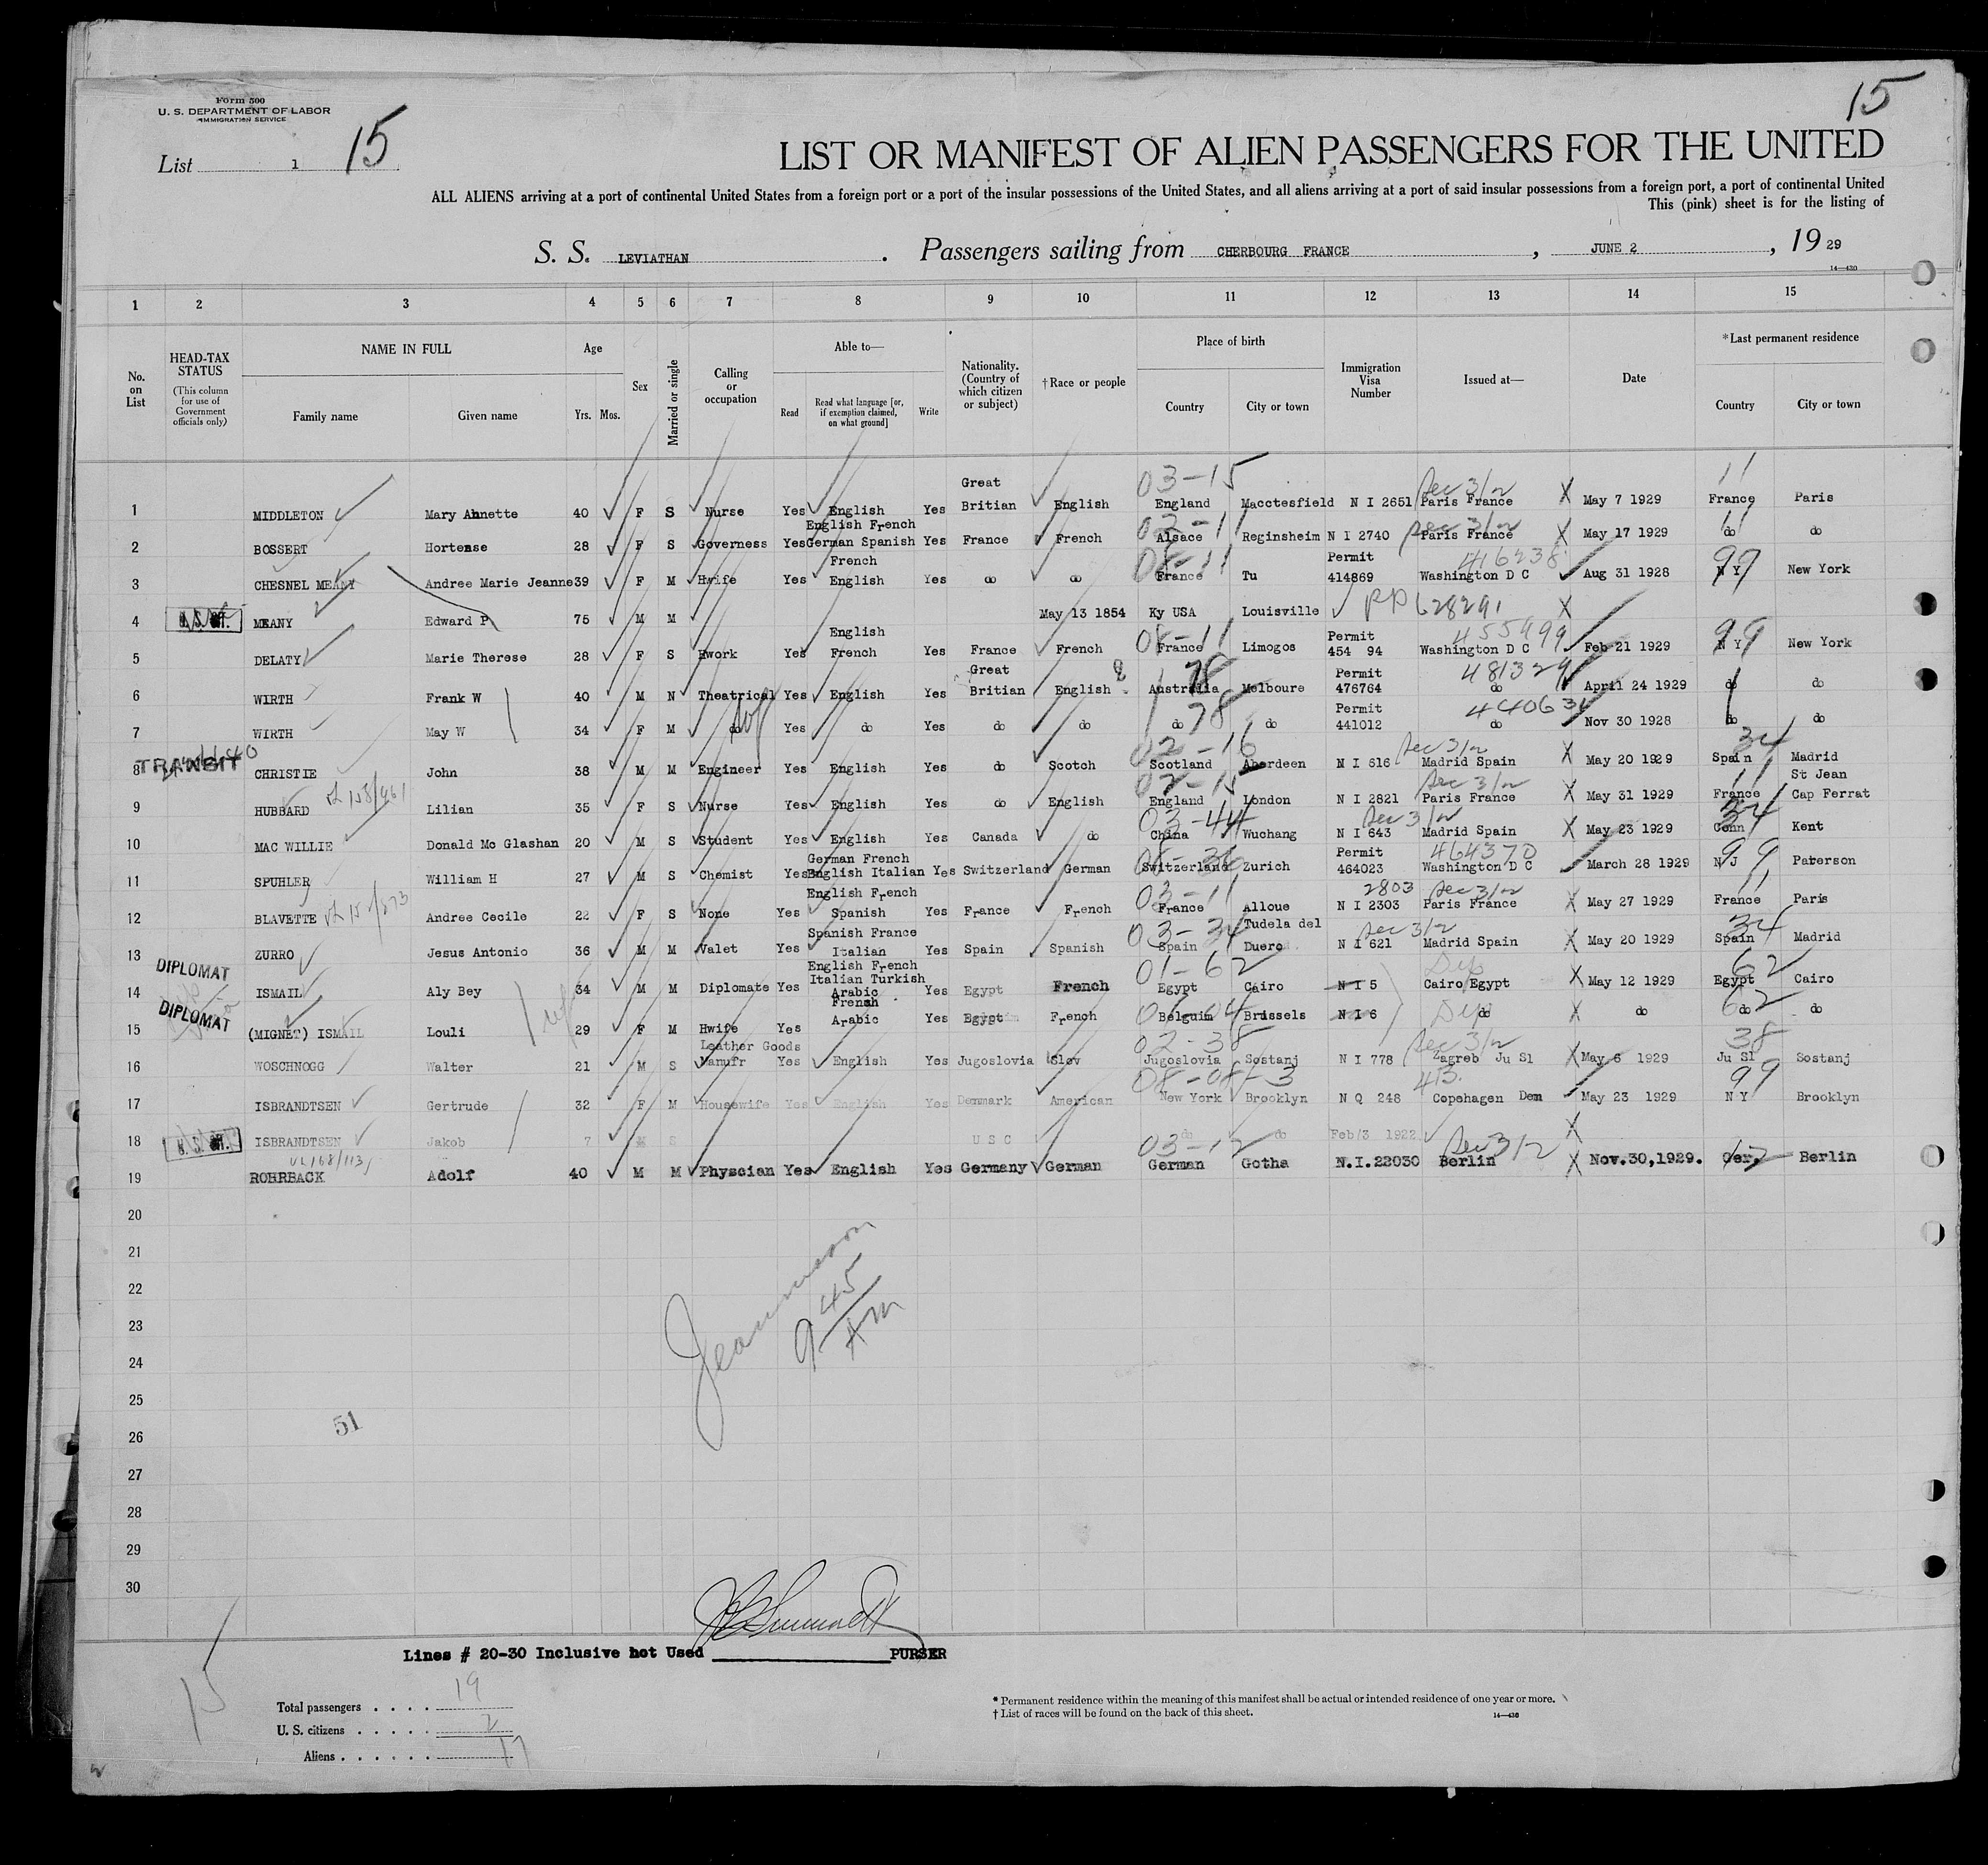 Form 500
U. S. DEPARTMENT OF LABOR
IMMIGRATION SERVICE
15
List 1 15
LIST OR MANIFEST OF ALIEN PASSENGERS FOR THE UNITED
ALL ALIENS arriving at a port of continental United States from a foreign port or a port of the insular possessions of the United States, and all aliens arriving at a port of said insular possessions from a foreign port, a port of continental United
This (pink) sheet is for the listing of
S. S. LEVIATHAN . Passengers sailing from CHERBOURG FRANCE , JUNE 2 , 19 29
14—430
1 2 3 4 5 6 7 8 9 10 11 12 13 14 15
No. on List
HEAD-TAX STATUS
(This column for use of Government officials only)
NAME IN FULL
Family name Given name
Age
Yrs. Mos.
Sex
Married or single
Calling or occupation
Able to—
Read Read what language [or, if exemption claimed, on what ground] Write
Nationality. (Country of which citizen or subject)
†Race or people
Place of birth
Country City or town
Immigration Visa Number
Issued at—
Date
*Last permanent residence
Country City or town
03-15 Sec 3/2 11
1 MIDDLETON Mary Annette 40 F S Nurse Yes English Yes Great Britian English England Macctesfield N I 2651 Paris France X May 7 1929 France Paris
Sec 3/2 11
2 BOSSERT Hortense 28 F S Governess Yes English French German Spanish Yes France French Alsace Reginsheim N I 2740 Paris France X May 17 1929 do do
08-11 416238 99
3 CHESNEL MEANY Andree Marie Jeanne 39 F M Hwife Yes French English Yes do do France Tu Permit 414869 Washington D C Aug 31 1928 N Y New York
4 MEANY Edward P 75 M M May 13 1854 Ky USA Louisville PP 628291 X
08-11 455499 99
5 DELATY Marie Therese 28 F S Hwork Yes English French Yes France French France Limogos Permit 454 94 Washington D C Feb 21 1929 N Y New York
78 481329
6 WIRTH Frank W 40 M N Theatrical Yes English Yes Great Britian English Australia Melboure Permit 476764 do April 24 1929 do do
78
7 WIRTH May W 34 F M do Yes do Yes do do do do Permit 441012 do Nov 30 1928 do do
02-16 Sec 3/2 34
8 TRANSIT CHRISTIE John 38 M M Engineer Yes English Yes do Scotch Scotland Aberdeen N I 616 Madrid Spain X May 20 1929 Spain Madrid
02-15 Sec 3/2 11
9 HUBBARD Lilian 35 F S Nurse Yes English Yes do English England London N I 2821 Paris France X May 31 1929 France St Jean Cap Ferrat
03-44 Sec 3/2 34
10 MAC WILLIE Donald Mc Glashan 20 M S Student Yes English Yes Canada do China Wuchang N I 643 Madrid Spain X May 23 1929 Conn Kent
464370 99
11 SPUHLER William H 27 M S Chemist Yes German French English Italian Yes Switzerland German Switzerland Zurich Permit 464023 Washington D C March 28 1929 N J Paterson
03-11 2803 Sec 3/2 11
12 BLAVETTE Andree Cecile 22 F S None Yes English French Spanish Yes France French France Alloue N I 2303 Paris France X May 27 1929 France Paris
03-34 Sec 3/2 34
13 ZURRO Jesus Antonio 36 M M Valet Yes Spanish France Italian Yes Spain Spanish Spain Tudela del Duero N I 621 Madrid Spain X May 20 1929 Spain Madrid
01-62 Dip 62
14 DIPLOMAT ISMAIL Aly Bey 34 M M Diplomate Yes English French Italian Turkish Arabic Yes Egypt French Egypt Cairo N I 5 Cairo Egypt X May 12 1929 Egypt Cairo
Dip 62
15 DIPLOMAT (MIGNET) ISMAIL Louli 29 F M Hwife Yes French Arabic Yes Egypt French Belguim Brussels N I 6 do X do do do
02-38 Sec 3/2 38
16 WOSCHNOGG Walter 21 M S Leather Goods Manufr Yes English Yes Jugoslovia Slov Jugoslovia Sostanj N I 778 Zagreb Ju Sl X May 6 1929 Ju Sl Sostanj
08-08-3 99
17 ISBRANDTSEN Gertrude 32 F M Housewife Yes English Yes Denmark American New York Brooklyn N Q 248 Copehagen Dem May 23 1929 N Y Brooklyn
18 ISBRANDTSEN Jakob 7 M S U S C do do Feb/3 1922 X
03-12 Sec 3/2
19 ROHRBACK Adolf 40 M M Physcian Yes English Yes Germany German German Gotha N.I.22030 Berlin X Nov.30,1929. Ger. Berlin
20
21
22
23
24
25
26
27
28
29
30
9 45 AM
51
Lines # 20-30 Inclusive not Used PURSER
15
Total passengers . . . . 19
U. S. citizens . . . . . 2
Aliens . . . . . . 17
* Permanent residence within the meaning of this manifest shall be actual or intended residence of one year or more.
† List of races will be found on the back of this sheet.
14—430